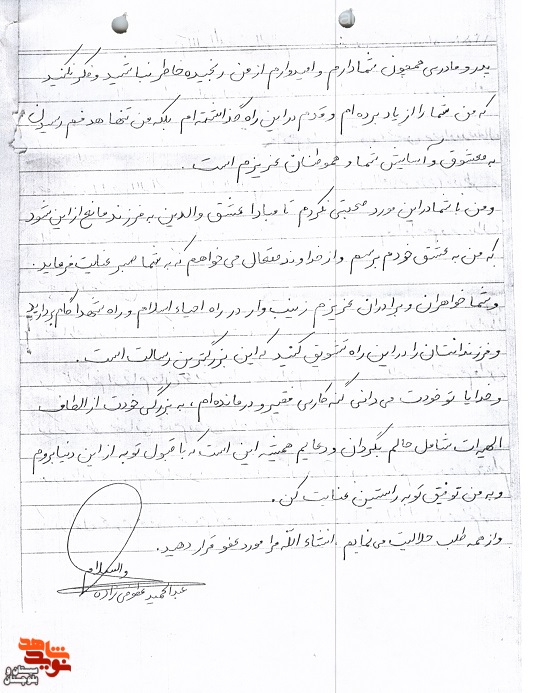 پدر و مادری همچون شما دارم و امیدوارم از من رنجیده خاطر نباشید و فکر نکنید
که من شما را از یاد برده ام و قدم در این راه گذاشته ام بلکه من تنها هدفم رسیدن
به معشوق و آسایش شما و هموطنان عزیزم است.
و من با شما در این مورد صحبتی نکردم تا مبادا عشق والدین به فرزند مانع از این شود
که من به عشق خودم برسم و از خداوند متعال می خواهم که به شما صبر عنایت فرماید.
و شما خواهران و برادران عزیزم زینب وار در راه احیاء اسلام و راه شهدا گام بردارید
و فرزندانتان را در این راه تشویق کنید که این بزرگترین رسالت است.
و خدایا تو خودت می دانی گنه کاری فقیر و درمانده ام، به بزرگی خودت از الطاف
الهیت شامل حالم بگردان و دعایم همیشه این است که با قبول توبه از این دنیا بروم
و به من توفیق توبه راستین عنایت کن.
و از همه طلب حلالیت می نمایم. انشاء الله مرا مورد عفو قرار دهید.
والسلام
عبدالحمید زاده
نوید شاهد
سیستان و بلوچستان